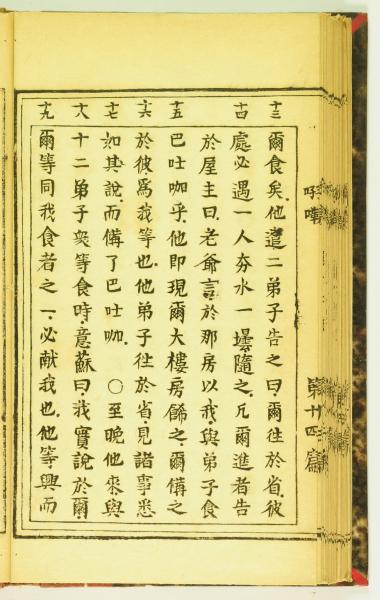 十三 爾食矣。他遣二弟子告之曰爾往於省。彼
十四 處必遇一人夯水一罎隨之。凡爾進者告
於屋主曰老爺言於那房以我與弟子食
十五 巴吐咖乎。他即現爾大樓房餙之。爾備之
十六 於彼爲我等也。他弟子往於省見諸事悉
十七 如其說。而備了巴吐咖。○至晚他來與
十八 十二弟子衆等食時。意蘇曰我實說於爾。
十九 爾等同我食者之一、必献我也。他等興而
第十四篇